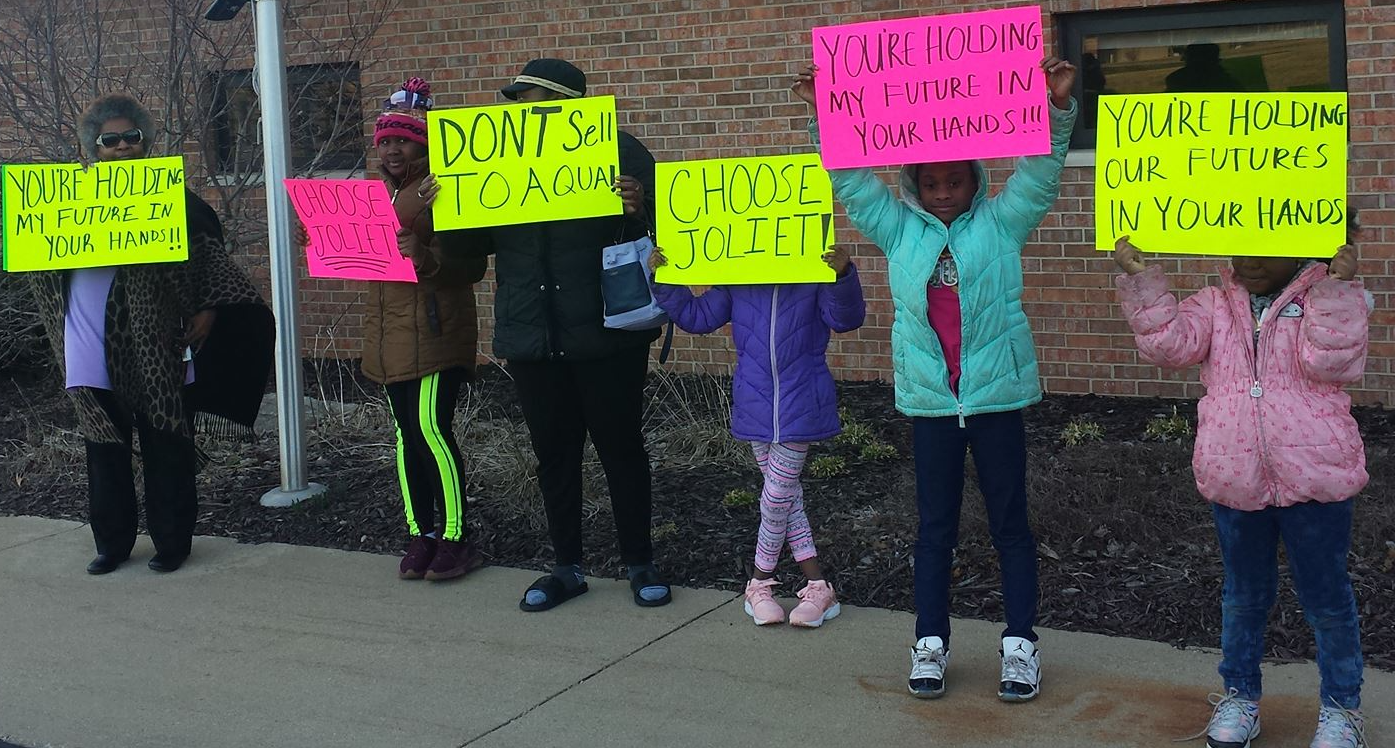 YOU'RE HOLDING
MY FUTURE IN
YOUR HANDS!!
CHOOSE
JOLIET!
DON'T Sell
TO AQUA!
CHOOSE
JOLIET!
YOU'RE HOLDING
MY FUTURE IN
YOUR HANDS!!!
YOU'RE HOLDING
OUR FUTURES
IN YOUR HANDS